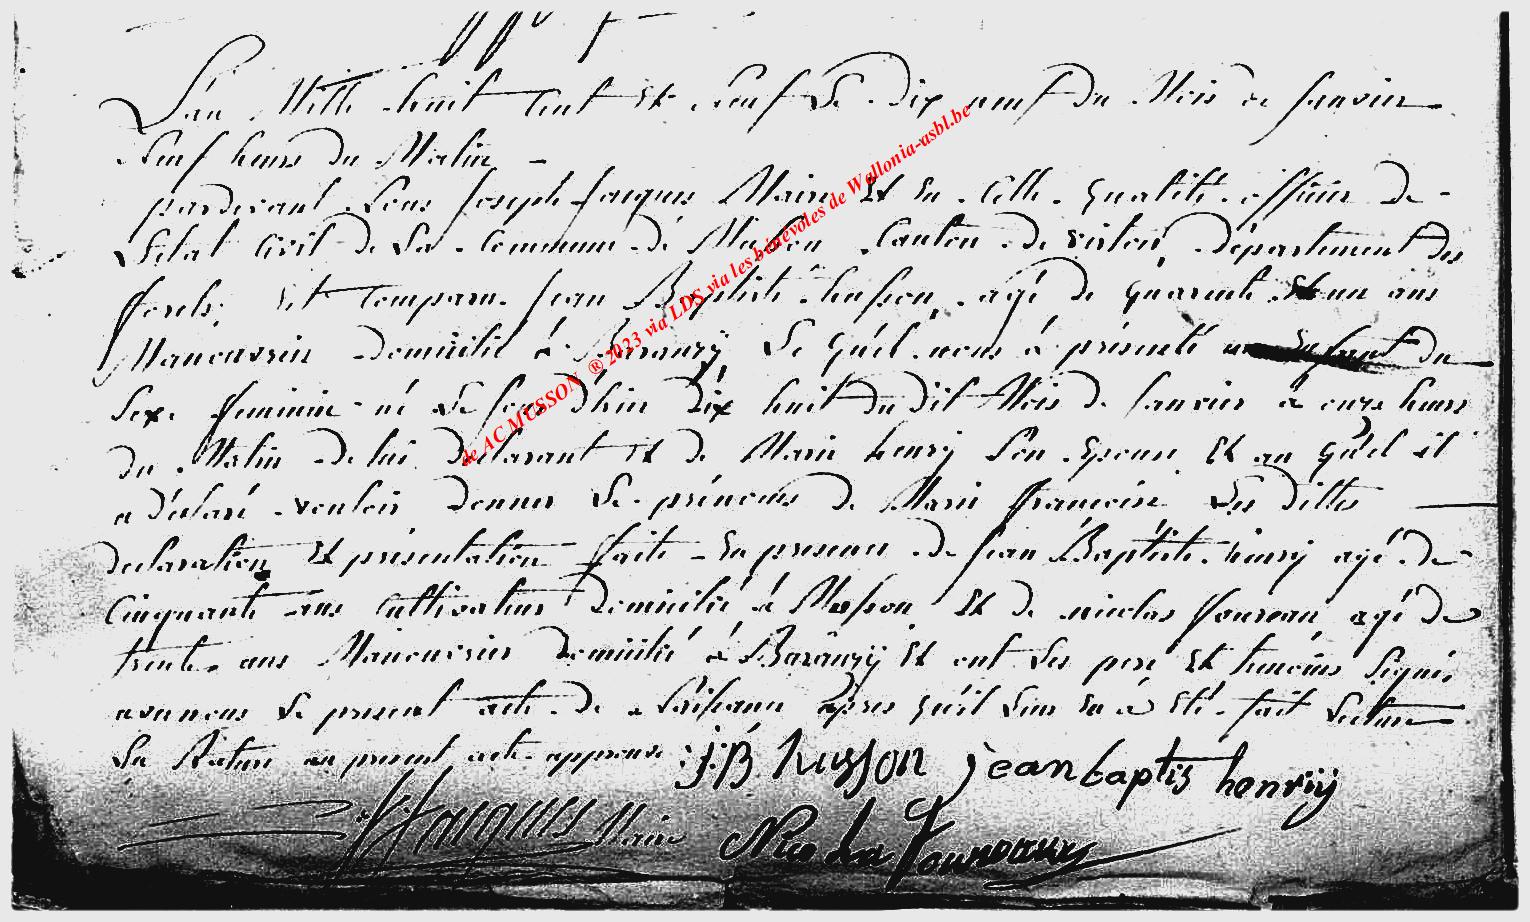 L'an Mille huit Cent Et neuf Le dix neuf du Mois de Janvier
neuf heures du Matin -
pardevant Nous Joseph Jacques Maire Et En Cette qualité officier De
L'Etat Civil de La Commune de Musson Canton de virton, Département des
forets; Est Comparu Jean Baptiste husson, agé de quarente Et un ans
Manouvrier Domicilié à Baranzÿ Le quel nous à présenté un Enfant du
Sexe feminin né Le jour d'hier Dix huit du dit Mois De Janvier à onze heures
du Matin de lui Declarant Et de Marie henrÿ Son Epouse Et au quel il
a déclaré vouloir donner Le prénoms De Marie françoise Les dittes
declaration Et présentation faite En presence de Jean Baptiste henrÿ agé de
Cinquante ans Cultivateur Domicilié à Musson Et De nicolas foureau agé De
trente ans Manouvrier Domicilié à Baranzÿ Et ont Les pere Et temoins Signés
avec nous Le present acte De Naissance apres qu'il Leur En à Eté fait Lecture
La Rature au present acte approuvé J:B husson jean baptis henrÿ
J Jacques Maire Nicolas Foureaux
de AC MUSSON ® 2023 via LDS via les bénévoles de Wallonia-asbl.be